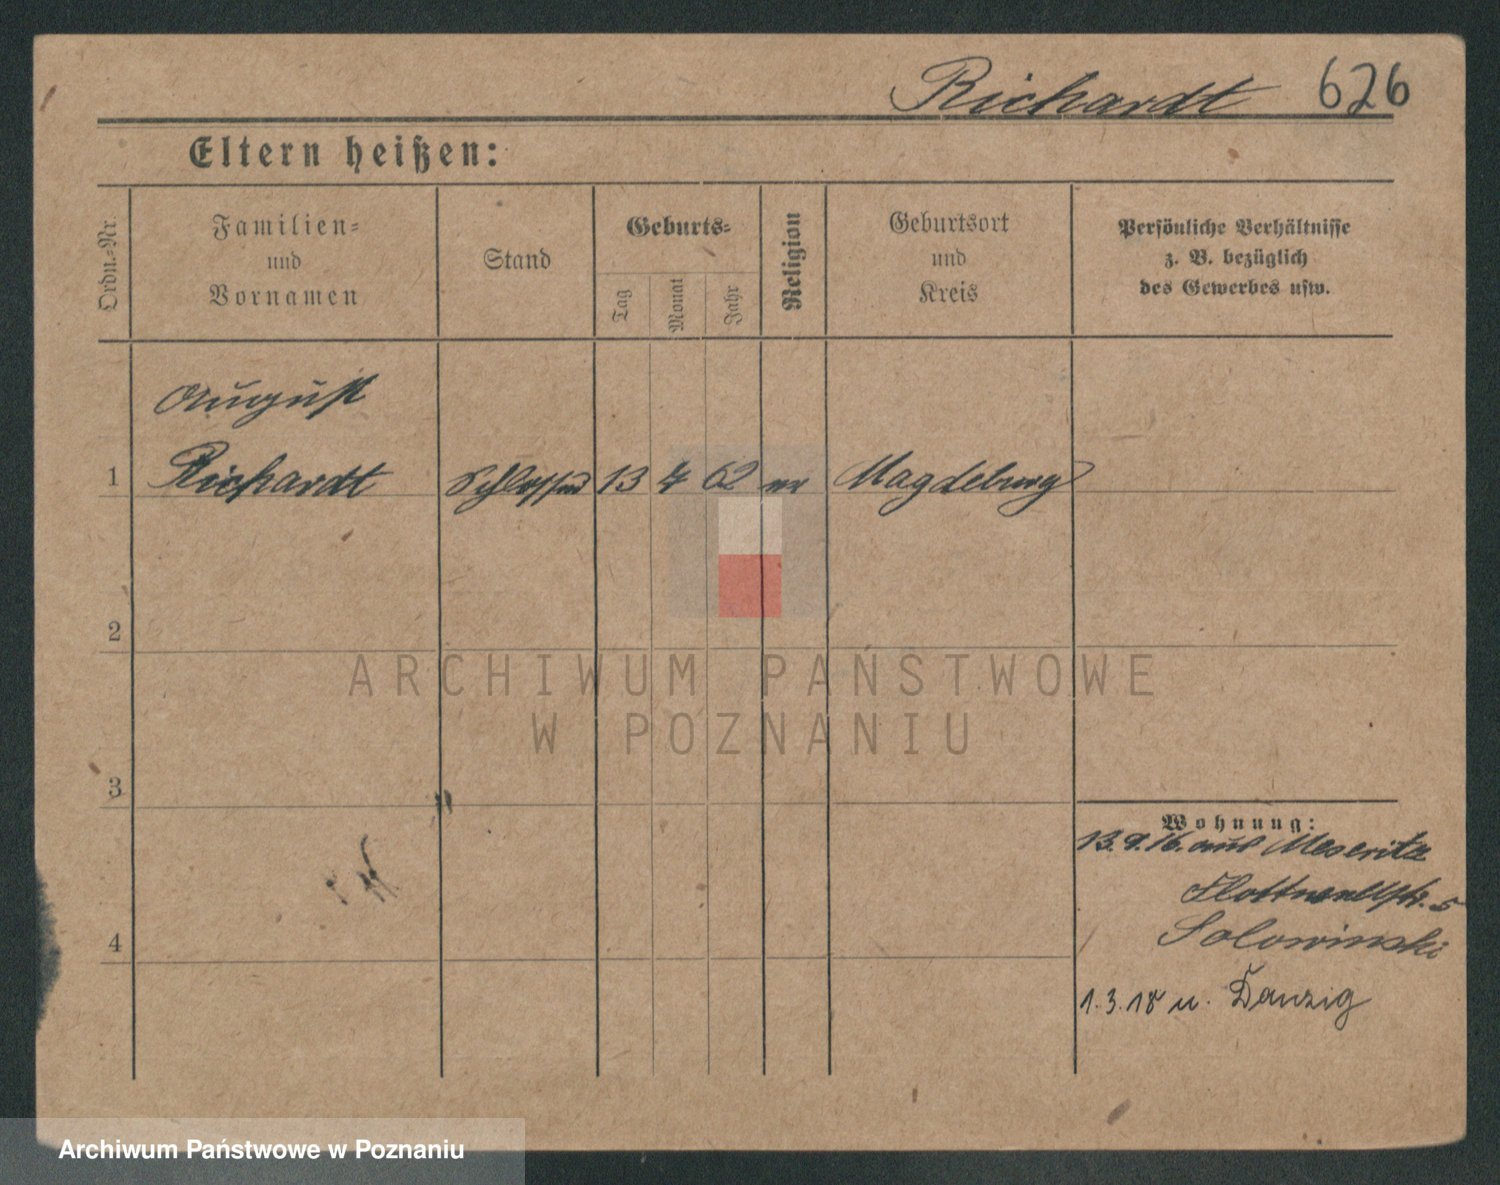 Richardt 626
Eltern heißen:
Ordn.-Nr.
Familien-
und
Vornamen
Stand
Geburts-
Tag
Monat
Jahr
Religion
Geburtsort
und
Kreis
Persönliche Verhältnisse
z. B. bezüglich
des Gewerbes usw.
August
1 Richardt Schlosser 13 4 62 Magdeburg
2
3
4
Wohnung:
13.9.16. aus Meseritz
5
Solowinski
1.3.18 n. Danzig
ARCHIWUM PAŃSTWOWE
W POZNANIU
Archiwum Państwowe w Poznaniu